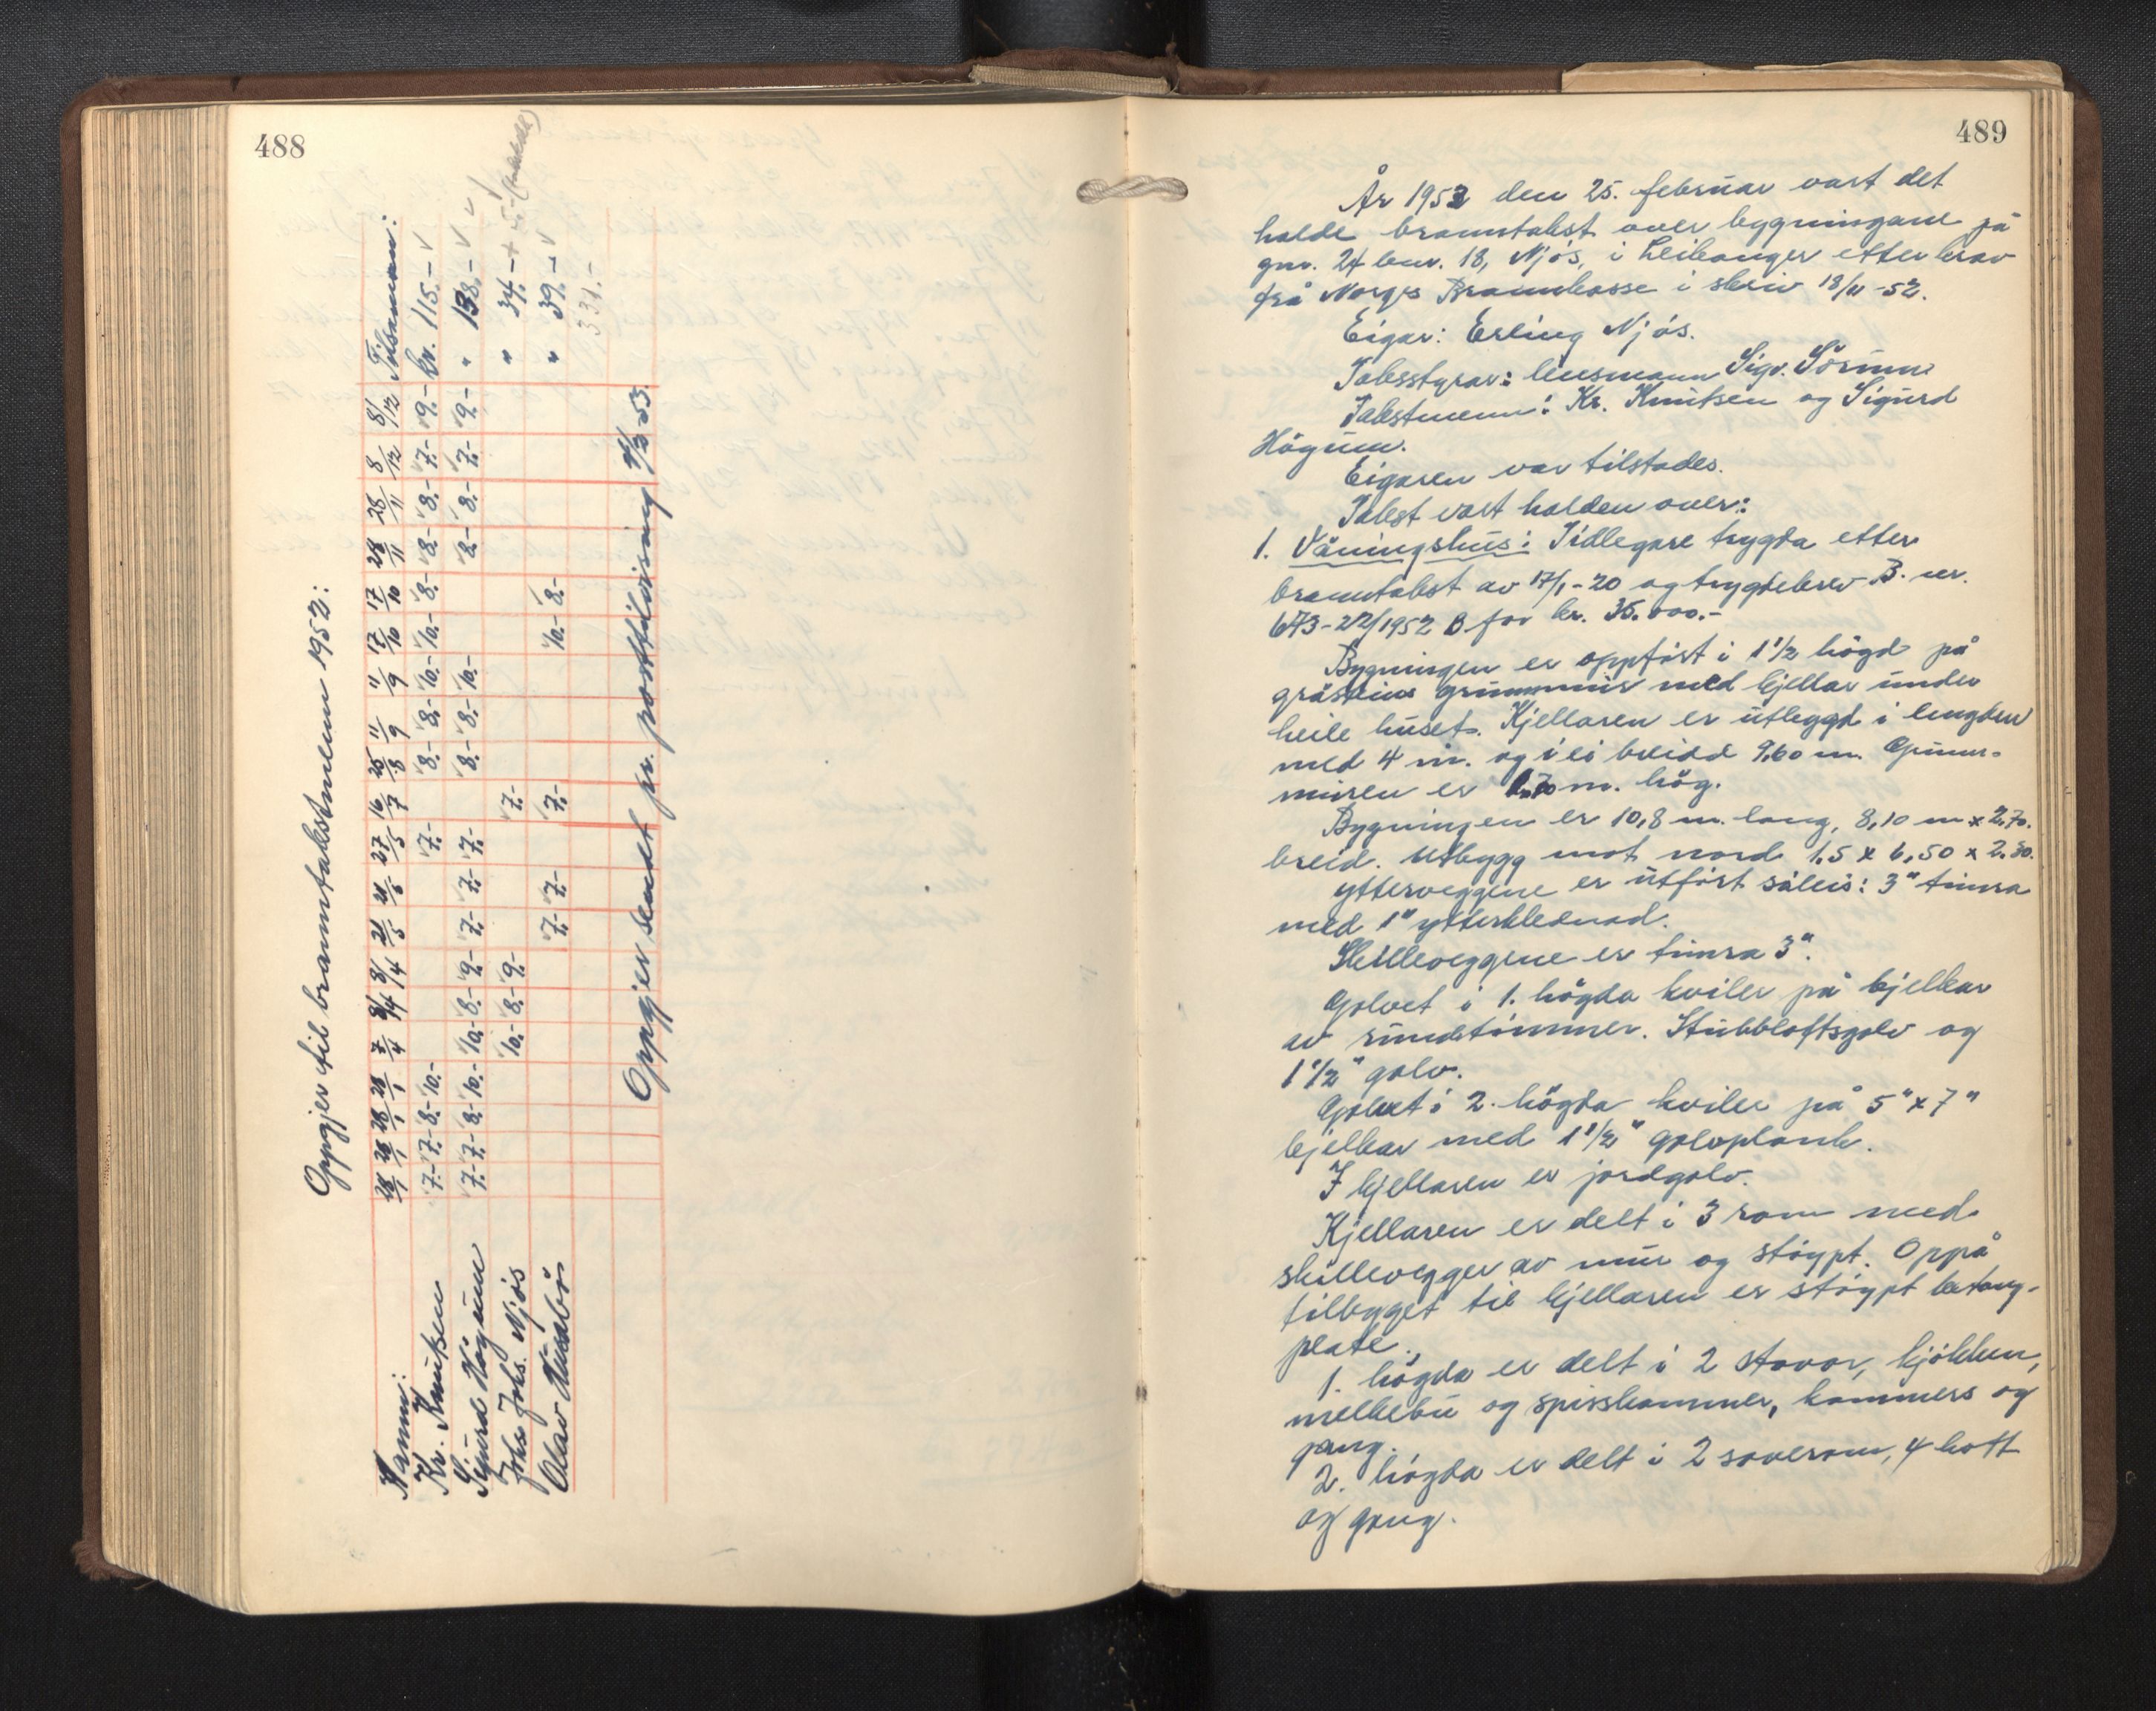 488
Oppgjer til branntakstmenn 1952:
Namn: 28/1 28/1 28/1 28/1 7/4 8/4 8/4 21/5 21/5 27/5 16/7 25/8 11/9 11/9 17/10 17/10 28/11 28/11 8/12 8/12 Tilsaman:
Kr. Knutsen 7.- 7.- 8.- 10.- 7.- 8.- 8.- 10.- 10.- 8.- 8.- 8.- 7.- 9.- kr. 115.- v
Sigurd Högum 7.- 7.- 8.- 10.- 10.- 8.- 9.- 7.- 7.- 7.- 8.- 8.- 10.- 8.- 8.- 7.- 9.- " 138.- v v
Johs Johs. Njøs 10.- 8.- 9.- 7.- " 34.-
Olav Husabø 7.- 7.- 7.- 10.- 8.- " 39.- v
331.-
Oppgjer sendt pr. posttilvising 4/2-53.
489
År 1953 den 25. februar vart det
halde branntakst over bygningane på
gnr. 24 bnr. 18, Njøs, i Leikanger etter krav
frå Norges Brannkasse i skriv 18/11-52.
Eigar: Erling Njøs.
Takststyrar: lensmann Sigv. Sörum
Takstmenn: Kr. Knutsen og Sigurd
Högum.
Eigaren var tilstades.
Takst vart halden over:
1. Våningshus: Tidlegare trygda etter
branntakst av 17/1-20 og trygdebrev B. nr.
673-22/1952 B for kr. 35.000.-
Bygningen er oppført i 1 1/2 högd på
gråsteins grunnmur med kjellar under
heile huset. Kjellaren er utbygd i lengden
med 4 m. og i ei breidd 9,60 m. Grunn-
muren er 1.70 m. høg.
Bygningen er 10,8 m. lang, 8,10 m x 2,70.
breid. Utbygg mot nord 1,5 x 6,50 x 2.30.
ytterveggene er utført såleis: 3" timra
med 1" ytterklednad.
Skilleveggene er timra 3".
Golvet i 1. högda kviler på bjelkar
av rundtömmer. Stubbloftsgolv og
1 1/2" golv.
Golvet i 2. högda kviler på 5" x 7"
bjelkar med 1 1/2" golvplank.
I kjellaren er jordgolv.
Kjellaren er delt i 3 rom med
skillevegger av mur og støypt. Oppå
tilbygget til kjellaren er støypt betong-
plate.
1. högda er delt i 2 stovor, kjökken,
melkebu og spisskammer, kammers og
gang.
2. högda er delt i 2 soverom, 4 kott
og gang.